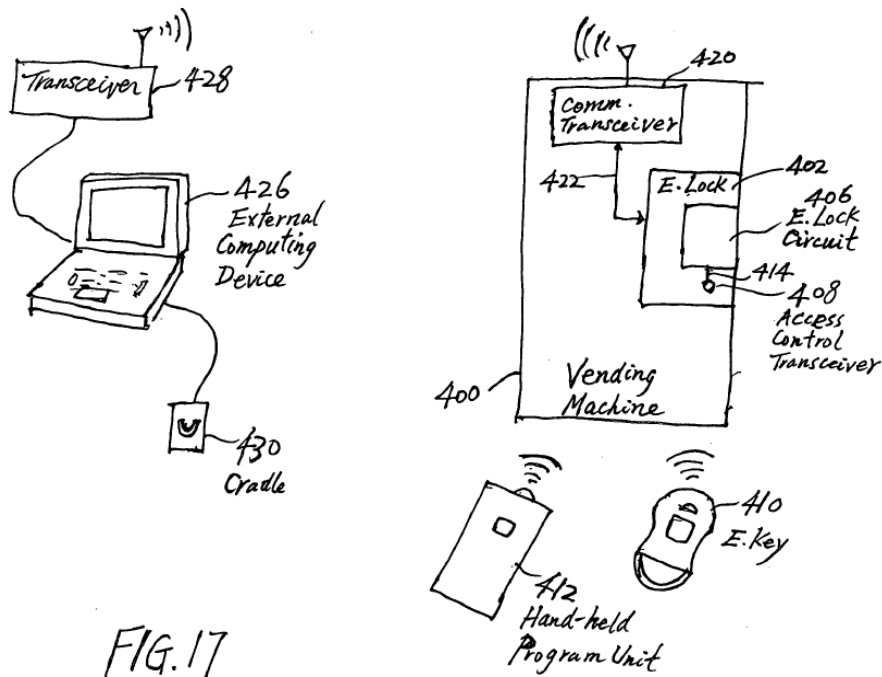 Transceiver
428
426
External
Computing
Device
430
Cradle
420
Comm.
Transceiver
422
E. Lock
402
406
E. Lock
Circuit
414
408
Access
Control
Transceiver
400
Vending
Machine
410
E. Key
412
Hand-held
Program Unit
FIG. 17